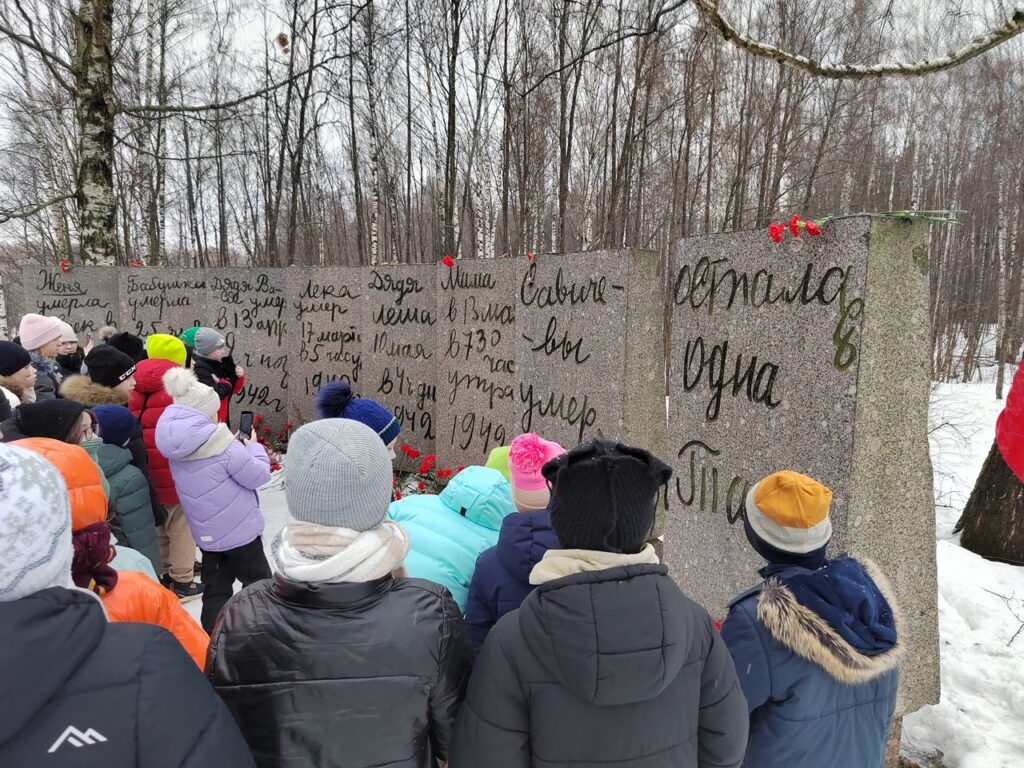 Женя
умерла
Бабушка
умерла
25
Дядя Ва-
умер
в 13 апр
1942г
Лека
умер
17 марта
в 5 часу
Дядя
Леша
10 мая
в 4 ч дн
1942
Мама
в 13 ма
в 7 30
час
утра
1942
Савиче-
-вы
умер
осталась
Одна
Та